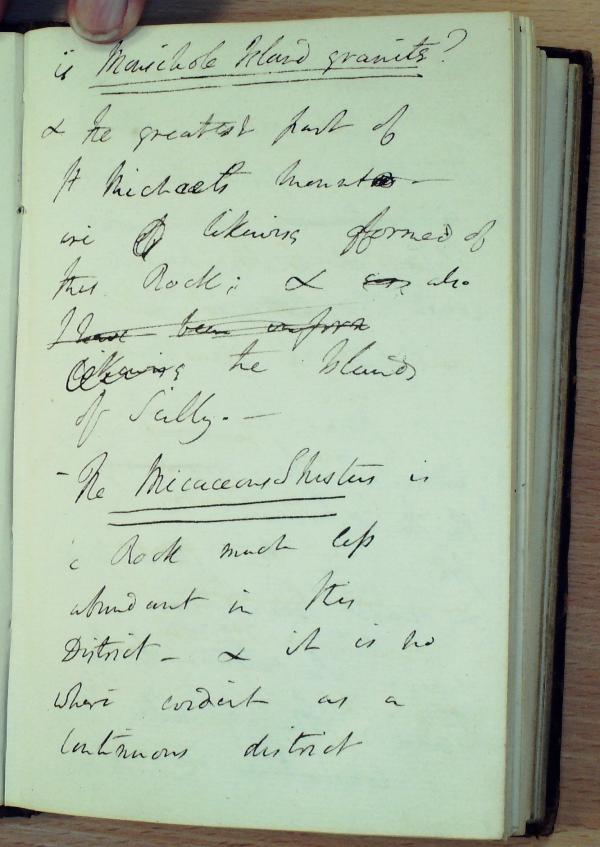 is Mousehole Island granite?
& the greatest part of
St Michaels Mount —
are likewise formed of
this Rock; & also
I have been inform
likewise the Islands
of Scilly. —
- The Micaceous Shistus is
a Rock much less
abundant in this
District - & it is no
where evident as a
continuous district